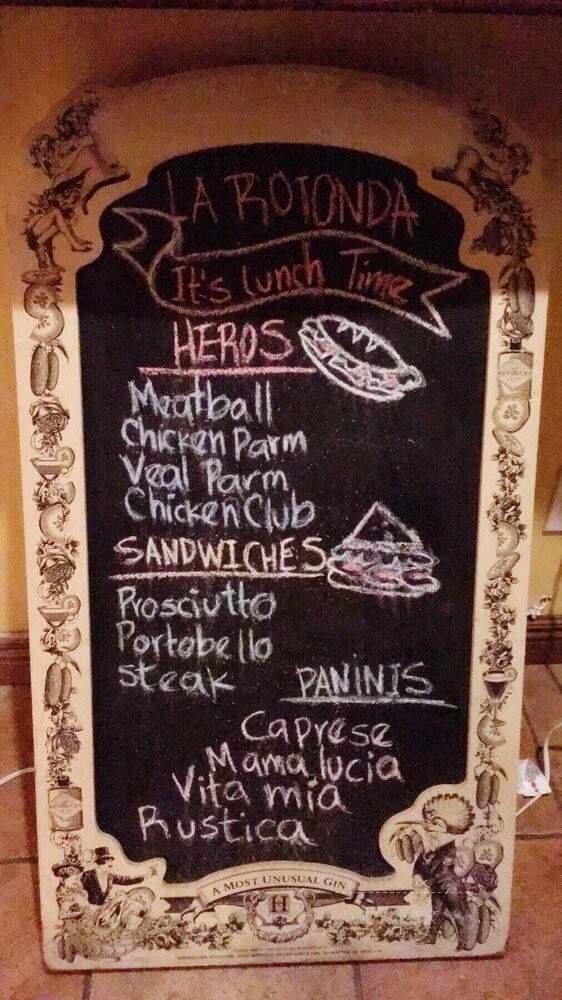 LA ROTONDA
It's lunch Time
HEROS
Meatball
Chicken Parm
Veal Parm
Chicken Club
SANDWICHES
Prosciutto
Portobello
steak
PANINIS
Caprese
Mama lucia
Vita mia
Rustica
HENDRICK'S
HENDRICK'S
A MOST UNUSUAL GIN
H